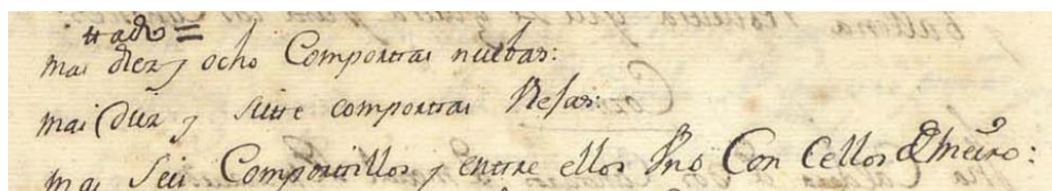 trado =
mas diez y ocho Comportas nuebas:
mas Diez y siete comportas Viejas:
mas seis Comportillos y entre ellos Vno Con Cellos de